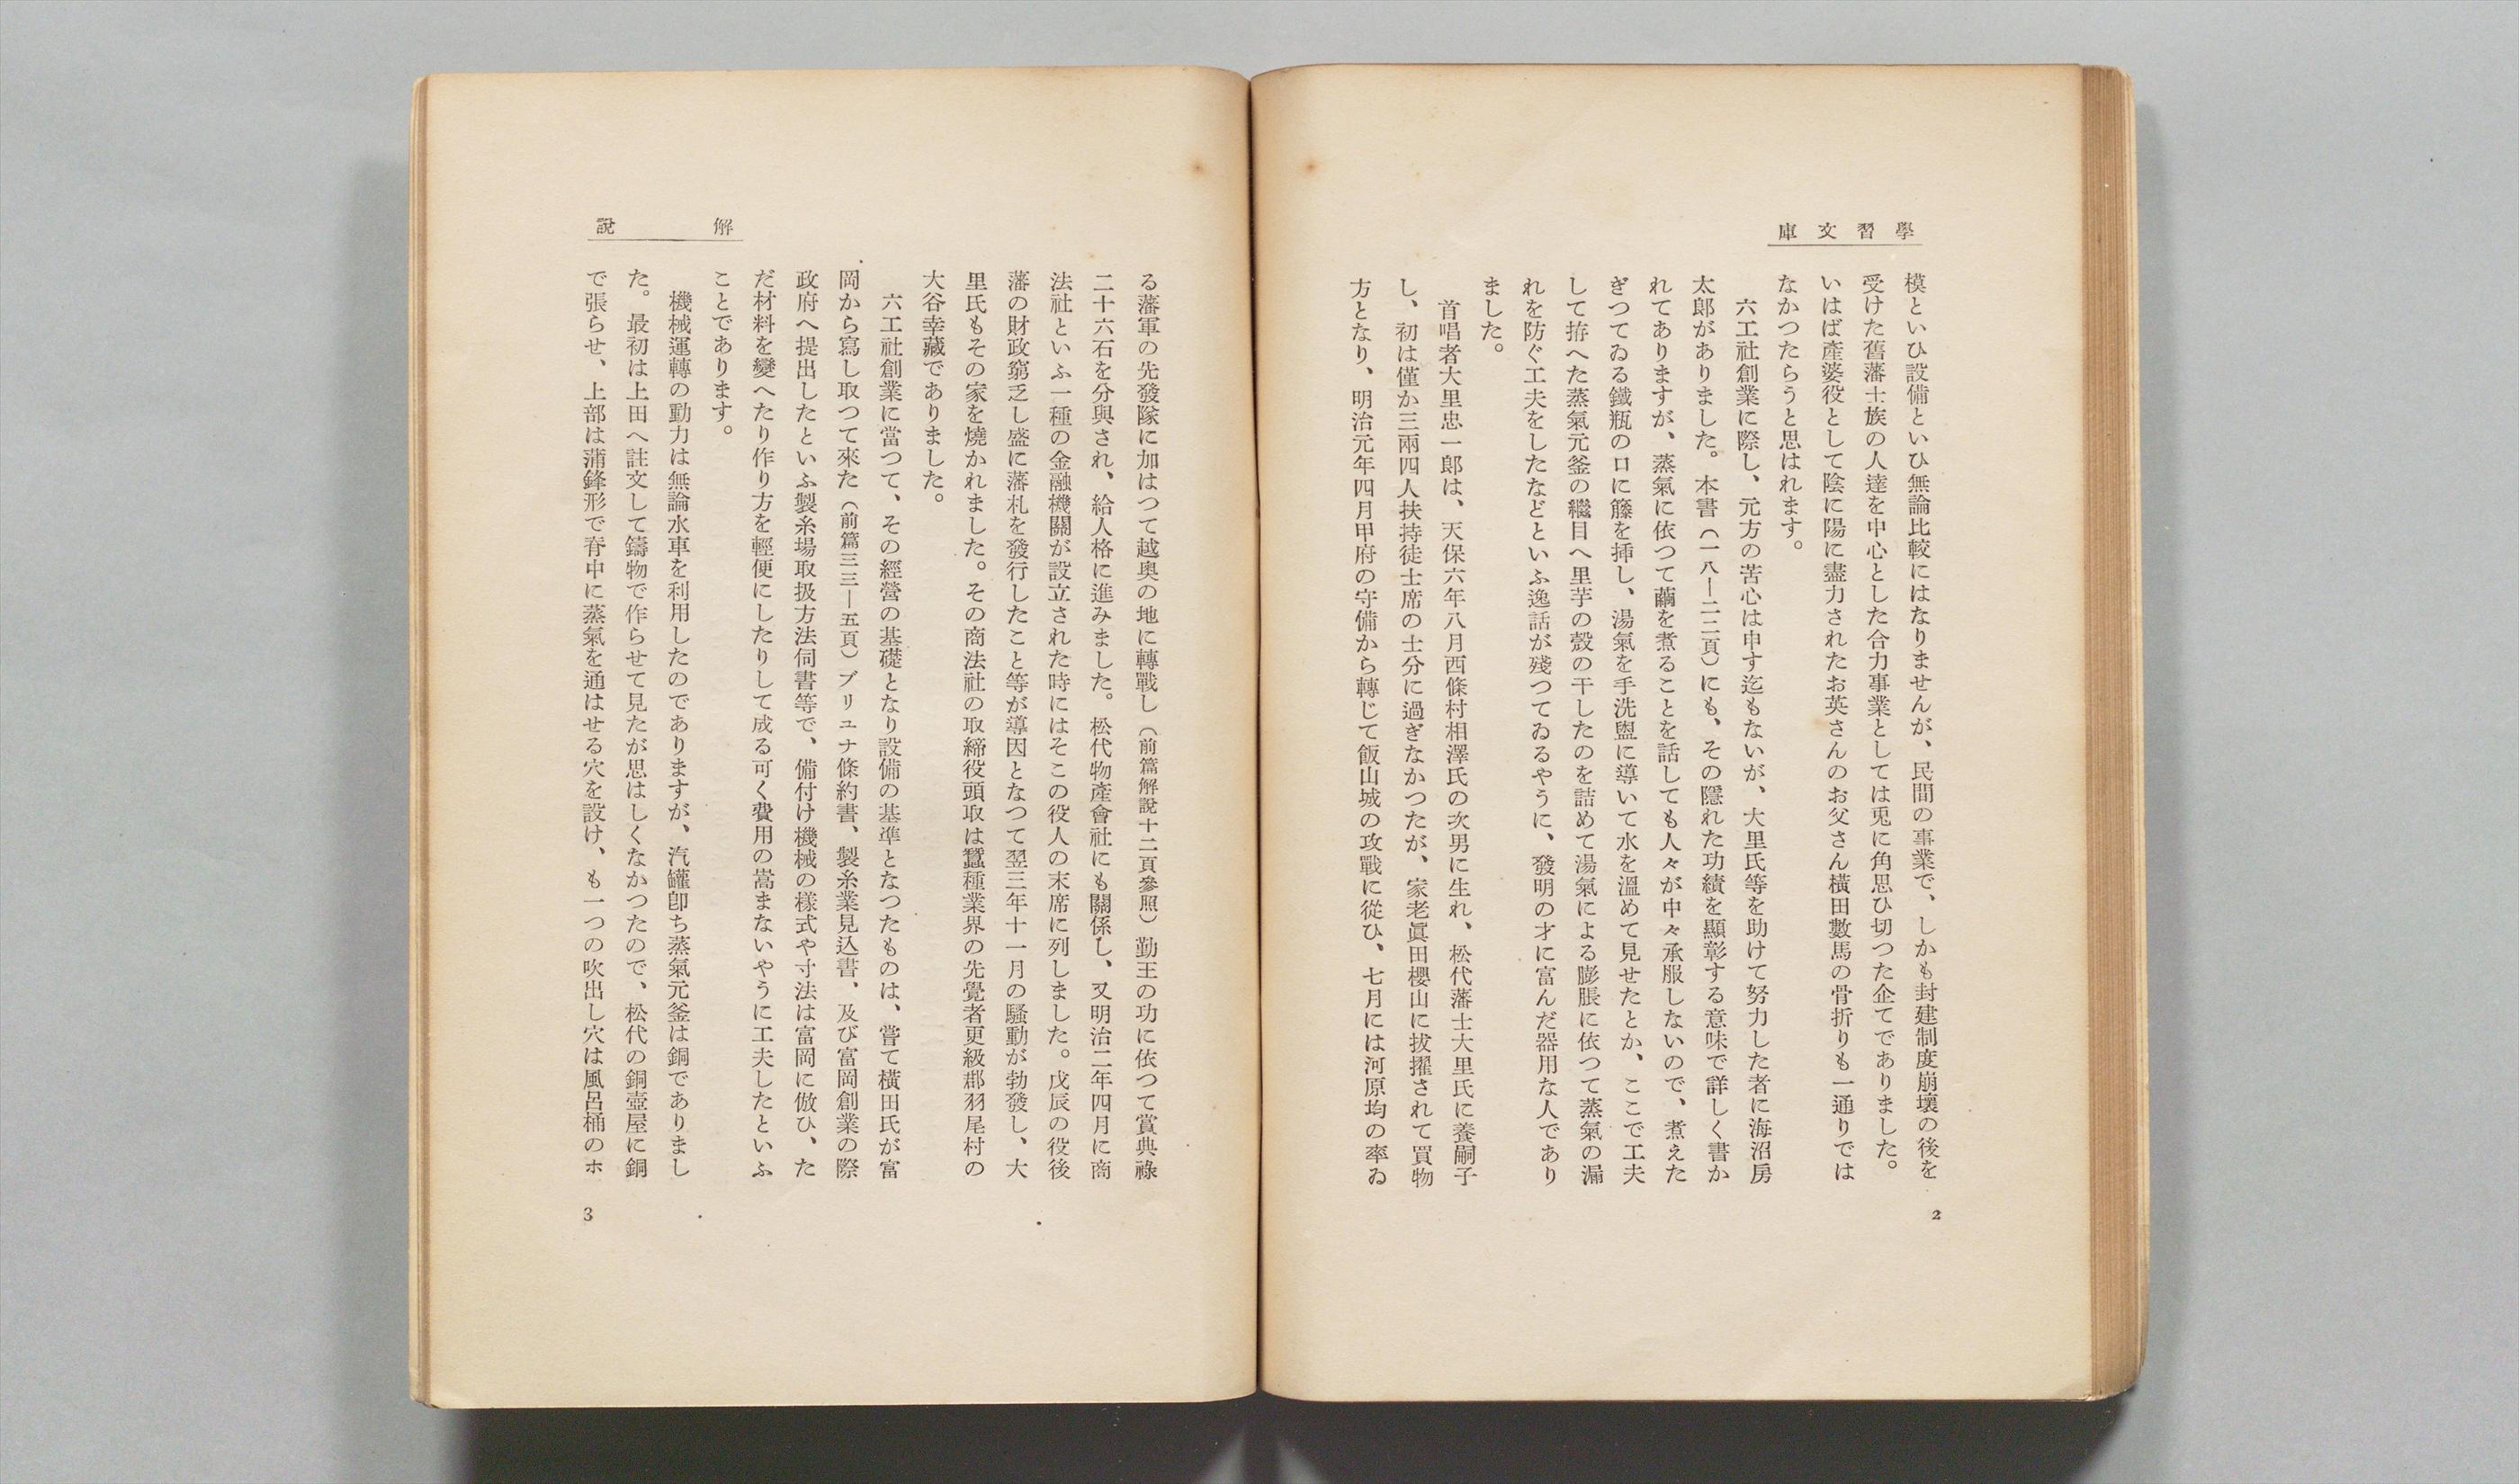 學習文庫
模といひ設備といひ無論比較にはなりませんが、民間の事業で、しかも封建制度崩壞の後を
受けた舊藩士族の人達を中心とした合力事業としては兎に角思ひ切つた企てでありました。
いはば產婆役として陰に陽に盡力されたお英さんのお父さん橫田數馬の骨折りも一通りでは
なかつたらうと思はれます。
六工社創業に際し、元方の苦心は申す迄もないが、大里氏等を助けて努力した者に海沼房
太郞がありました。本書（一八―二二頁）にも、その隱れた功績を顯彰する意味で詳しく書か
れてありますが、蒸氣に依つて繭を煮ることを話しても人々が中々承服しないので、煮えた
ぎつてゐる鐵瓶の口に籐を挿し、湯氣を手洗盥に導いて水を溫めて見せたとか、ここで工夫
して拵へた蒸氣元釜の繼目へ里芋の殼の干したのを詰めて湯氣による膨脹に依つて蒸氣の漏
れを防ぐ工夫をしたなどといふ逸話が殘つてゐるやうに、發明の才に富んだ器用な人であり
ました。
首唱者大里忠一郞は、天保六年八月西條村相澤氏の次男に生れ、松代藩士大里氏に養嗣子
し、初は僅か三兩四人扶持徒士席の士分に過ぎなかつたが、家老眞田櫻山に拔擢されて買物
方となり、明治元年四月甲府の守備から轉じて飯山城の攻戰に從ひ、七月には河原均の率ゐ
2
解說
る藩軍の先發隊に加はつて越奥の地に轉戰し（前篇解說十二頁參照）勤王の功に依つて賞典祿
二十六石を分與され、給人格に進みました。松代物產會社にも關係し、又明治二年四月に商
法社といふ一種の金融機關が設立された時にはそこの役人の末席に列しました。戊辰の役後
藩の財政窮乏し盛に藩札を發行したこと等が導因となつて翌三年十一月の騷動が勃發し、大
里氏もその家を燒かれました。その商法社の取締役頭取は蠶種業界の先覺者更級郡羽尾村の
大谷幸藏でありました。
六工社創業に當つて、その經營の基礎となり設備の基準となつたものは、嘗て橫田氏が富
岡から寫し取つて來た（前篇三三―五頁）ブリユナ條約書、製糸業見込書、及び富岡創業の際
政府へ提出したといふ製糸場取扱方法伺書等で、備付け機械の樣式や寸法は富岡に倣ひ、た
だ材料を變へたり作り方を輕便にしたりして成る可く費用の嵩まないやうに工夫したといふ
ことであります。
機械運轉の動力は無論水車を利用したのでありますが、汽罐卽ち蒸氣元釜は銅でありまし
た。最初は上田へ註文して鑄物で作らせて見たが思はしくなかつたので、松代の銅壺屋に銅
で張らせ、上部は蒲鉾形で脊中に蒸氣を通はせる穴を設け、も一つの吹出し穴は風呂桶のホ
3